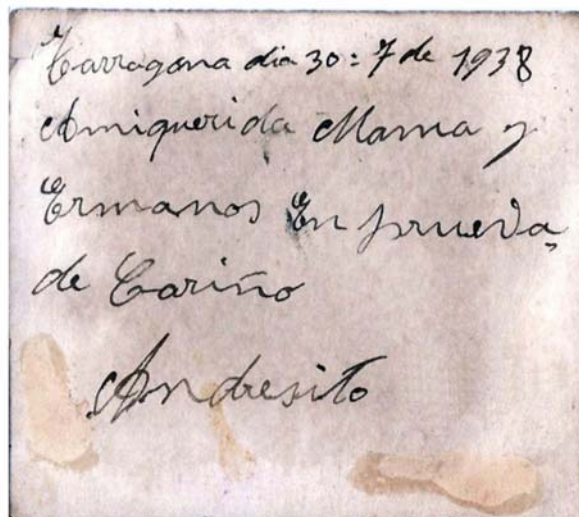 Tarragona dia 30=7 de 1938
Amiquerida Mama y
Ermanos En prueva
de Cariño
Andresito